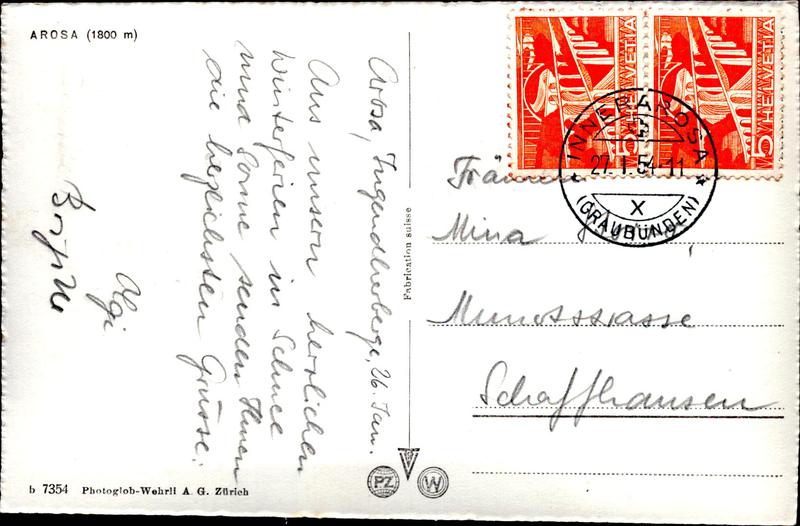 AROSA (1800 m)
Arosa, Jugendherberge, 26. Jan.
Aus unsern herrlichen
Winterferien in Schnee
und Sonne senden Ihnen
die herzlichsten Grüsse.
Algi
Fabrication suisse
PZ W
b 7354 Photoglob-Wehrli A. G. Zürich
5 HELVETIA
5 HELVETIA
INNERAROSA
27. I. 54-11
X
(GRAUBÜNDEN)
Fräulein
Mina
Munotstrasse
Schaffhausen